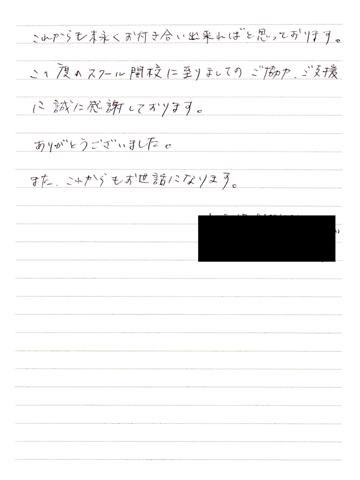 これからも末永くお付き合い出来ればと思っております。
この度のスクール開校に至りましてのご協力、ご支援
に誠に感謝しております。
ありがとうございました。
また、これからもお世話になります。